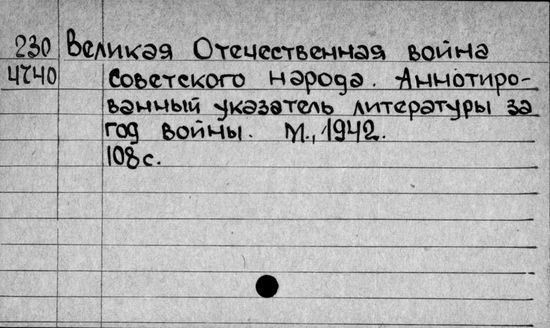 230 Великая Отечественная война
4740 советского народа. Аннотиро-
ванный указатель литературы за
год войны. М., 1942.
108с.